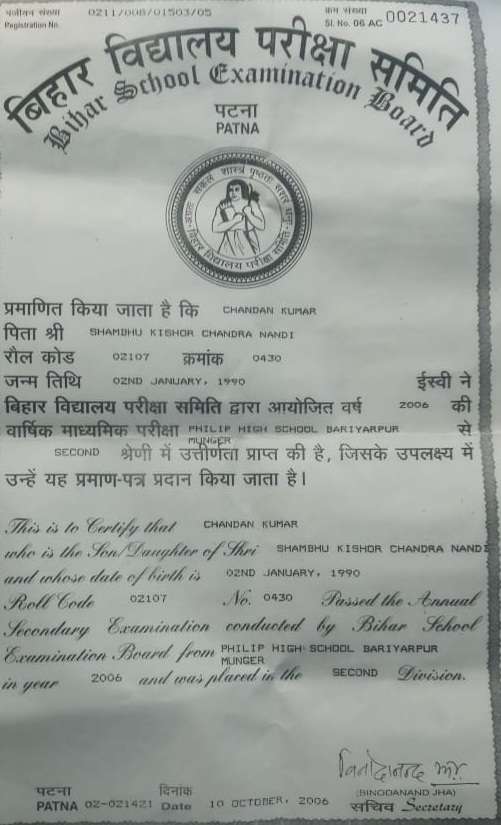 पंजीयन संख्या 0211/008/01503/05 क्रम संख्या
Registration No. Sl. No. 06 AC 0021437
बिहार विद्यालय परीक्षा समिति
Bihar School Examination Board
पटना
PATNA
बिहार विद्यालय परीक्षा समिति
प्रमाणित किया जाता है कि CHANDAN KUMAR
पिता श्री SHAMBHU KISHOR CHANDRA NANDI
रौल कोड 02107 क्रमांक 0430
जन्म तिथि 02ND JANUARY, 1990 ईस्वी ने
बिहार विद्यालय परीक्षा समिति द्वारा आयोजित वर्ष 2006 की
वार्षिक माध्यमिक परीक्षा PHILIP HIGH SCHOOL BARIYARPUR से
MUNGER
SECOND श्रेणी में उत्तीर्णता प्राप्त की है, जिसके उपलक्ष्य में
उन्हें यह प्रमाण-पत्र प्रदान किया जाता है।
This is to Certify that CHANDAN KUMAR
who is the Son/Daughter of Shri SHAMBHU KISHOR CHANDRA NANDI
and whose date of birth is 02ND JANUARY, 1990
Roll Code 02107 No. 0430 Passed the Annual
Secondary Examination conducted by Bihar School
Examination Board from PHILIP HIGH SCHOOL BARIYARPUR
MUNGER
in year 2006 and was placed in the SECOND Division.
(BINODANAND JHA)
पटना दिनांक
PATNA 02-021421 Date 10 OCTOBER, 2006 सचिव Secretary